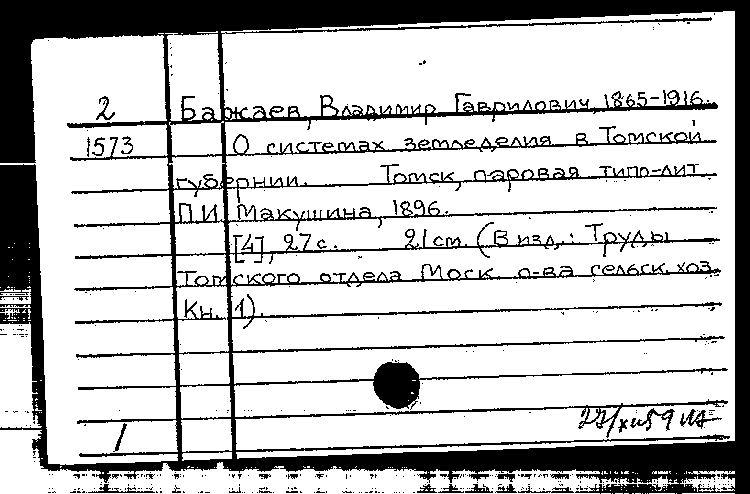 2 Бажаев, Владимир Гаврилович, 1865-1916.
1573 О системах земледелия в Томской
губернии. Томск, паровая типо-лит.
П.И. Макушина, 1896.
[4], 27 с. 21 см. (В изд.: Труды
Томского отдела Моск. о-ва сельск. хоз.
Кн. 1).
1